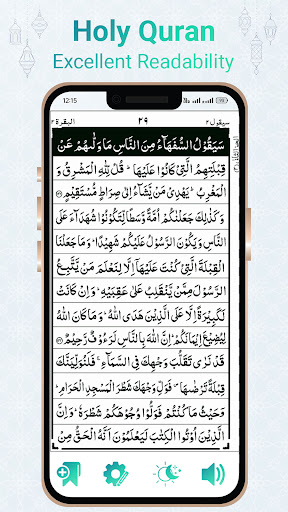 Holy Quran
Excellent Readability
12:15
البقرة ٢
٢٩
سيقول ٢
سَيَقُوْلُ السُّفَهَآءُ مِنَ النَّاسِ مَا وَلّٰىهُمْ عَنْ
قِبْلَتِهِمُ الَّتِيْ كَانُوْا عَلَيْهَا ؕ قُلْ لِّلّٰهِ الْمَشْرِقُ وَ
الْمَغْرِبُ ؕ يَهْدِيْ مَنْ يَّشَآءُ اِلٰى صِرَاطٍ مُّسْتَقِيْمٍ
وَ كَذٰلِكَ جَعَلْنٰكُمْ اُمَّةً وَّسَطًا لِّتَكُوْنُوْا شُهَدَآءَ عَلَى
النَّاسِ وَ يَكُوْنَ الرَّسُوْلُ عَلَيْكُمْ شَهِيْدًا ؕ وَ مَا جَعَلْنَا
الْقِبْلَةَ الَّتِيْ كُنْتَ عَلَيْهَاۤ اِلَّا لِنَعْلَمَ مَنْ يَّتَّبِعُ
الرَّسُوْلَ مِمَّنْ يَّنْقَلِبُ عَلٰى عَقِبَيْهِ ؕ وَ اِنْ كَانَتْ
لَكَبِيْرَةً اِلَّا عَلَى الَّذِيْنَ هَدَى اللّٰهُ ؕ وَ مَا كَانَ اللّٰهُ
لِيُضِيْعَ اِيْمَانَكُمْ ؕ اِنَّ اللّٰهَ بِالنَّاسِ لَرَءُوْفٌ رَّحِيْمٌ
قَدْ نَرٰى تَقَلُّبَ وَجْهِكَ فِي السَّمَآءِ ۚ فَلَنُوَلِّيَنَّكَ
قِبْلَةً تَرْضٰىهَا ۪ فَوَلِّ وَجْهَكَ شَطْرَ الْمَسْجِدِ الْحَرَامِ ؕ
وَ حَيْثُ مَا كُنْتُمْ فَوَلُّوْا وُجُوْهَكُمْ شَطْرَهٗ ؕ وَ اِنَّ
الَّذِيْنَ اُوْتُوا الْكِتٰبَ لَيَعْلَمُوْنَ اَنَّهُ الْحَقُّ مِنْ